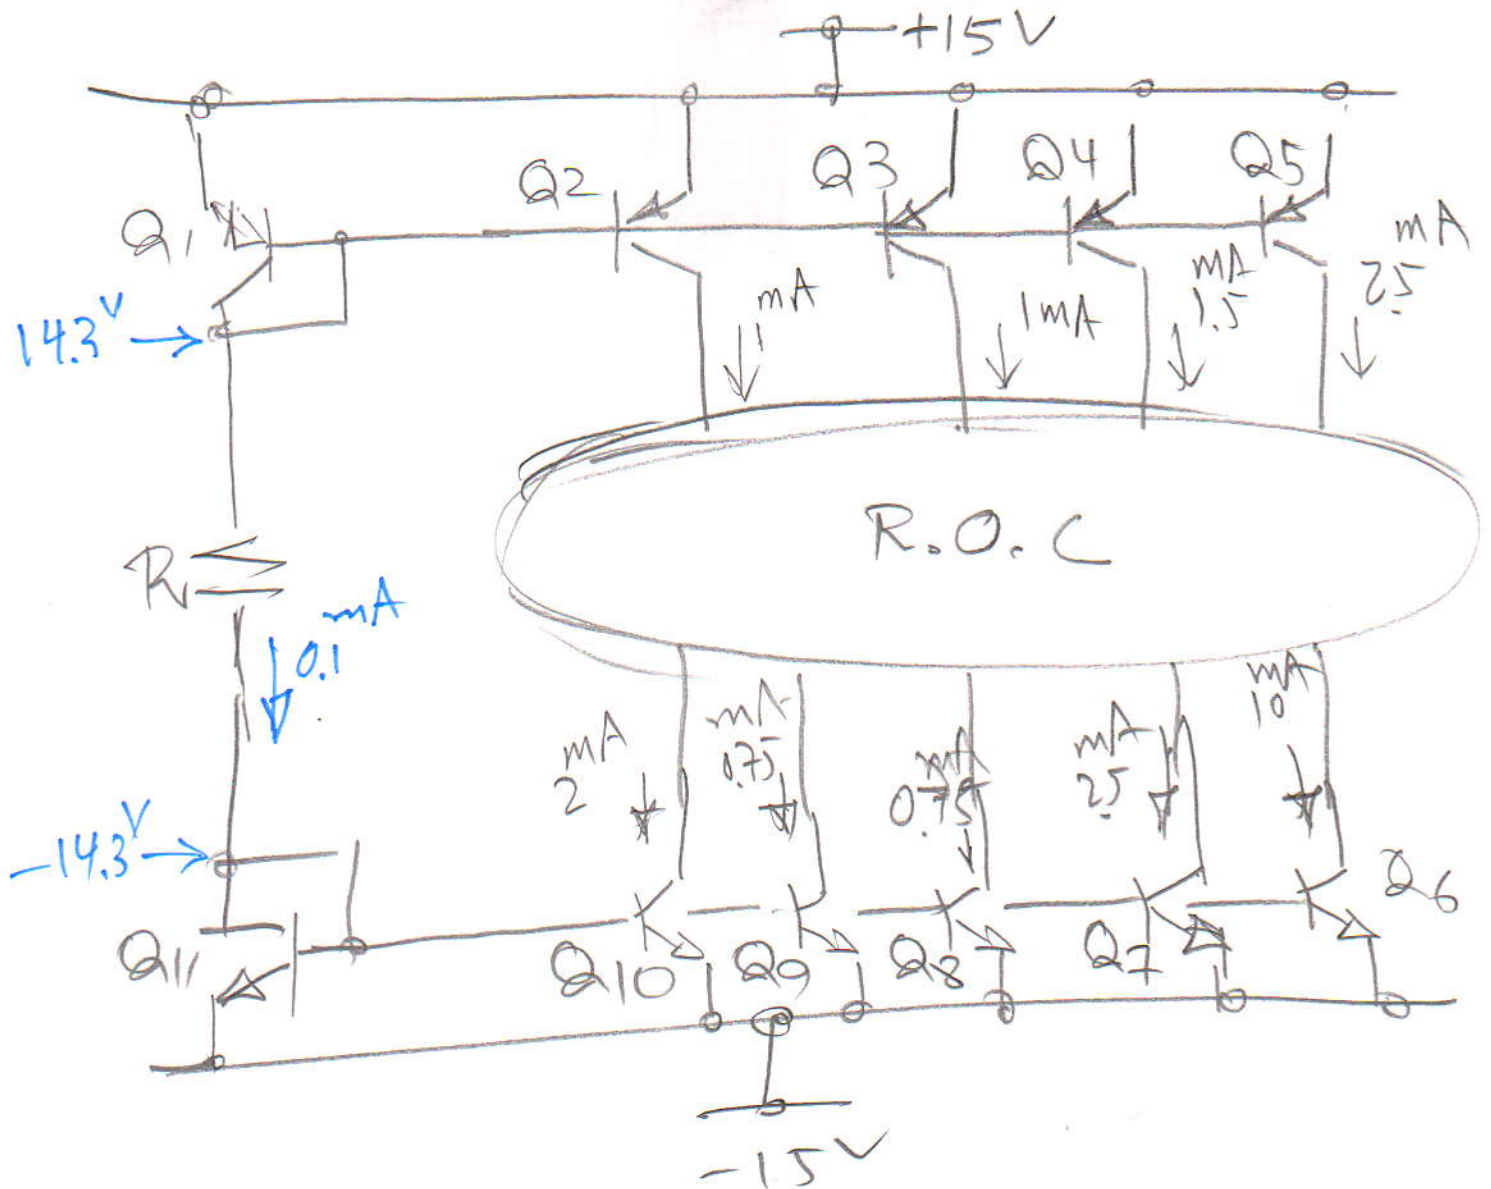 +15V
Q1
Q2
Q3
Q4
Q5
14.3V
1 mA
1mA
mA
1.5
mA
2.5
R
R.O.C
0.1 mA
mA
2
mA
0.75
mA
0.75
mA
2.5
mA
10
-14.3V
Q11
Q10
Q9
Q8
Q7
Q6
-15V